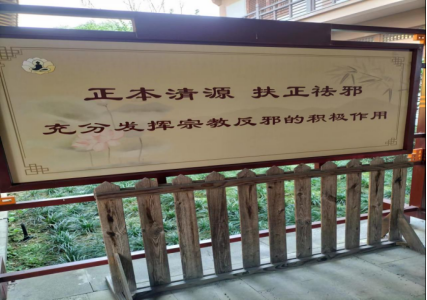 正本清源 扶正祛邪
充分发挥宗教反邪的积极作用